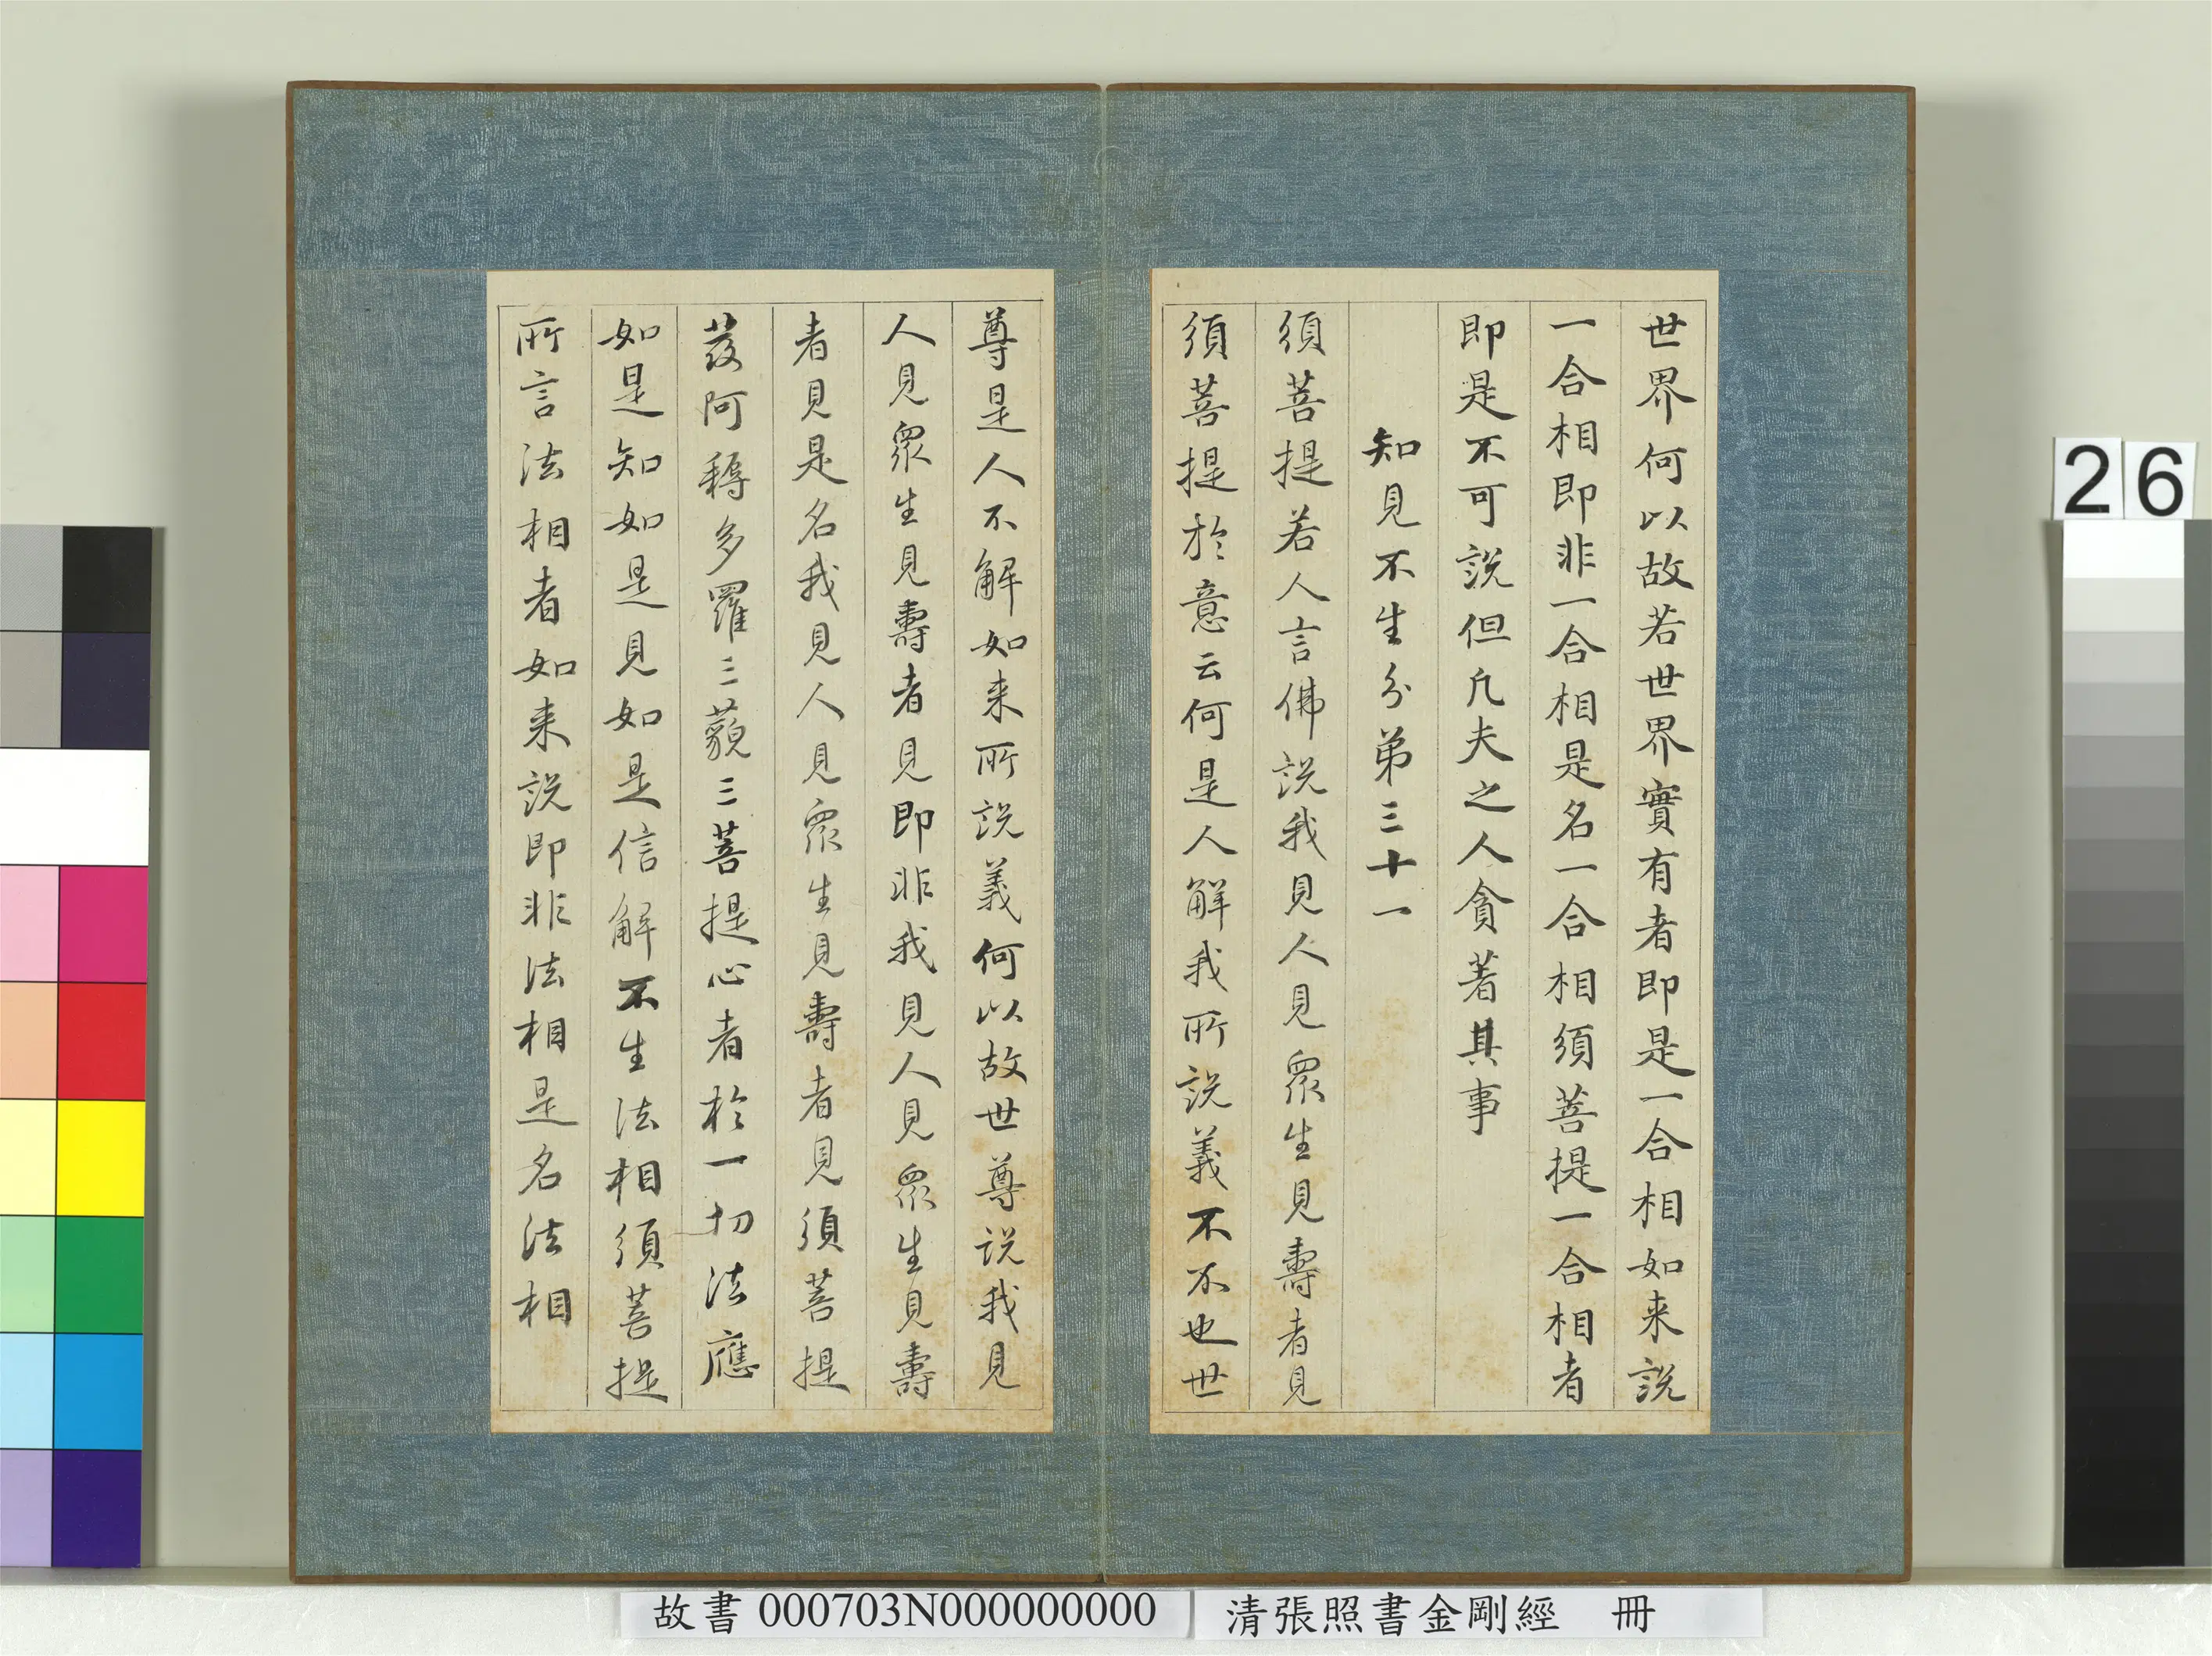 世界何以故若世界實有者即是一合相如来説
一合相即非一合相是名一合相須菩提一合相者
即是不可説但凡夫之人貪著其事
知見不生分第三十一
須菩提若人言佛説我見人見衆生見壽者見
須菩提於意云何是人解我所説義不不也世
尊是人不解如来所説義何以故世尊説我見
人見衆生見壽者見即非我見人見衆生見壽
者見是名我見人見衆生見壽者見須菩提
發阿耨多羅三藐三菩提心者於一切法應
如是知如是見如是信解不生法相須菩提
所言法相者如来説即非法相是名法相
26
故書 000703N000000000
清張照書金剛經 冊